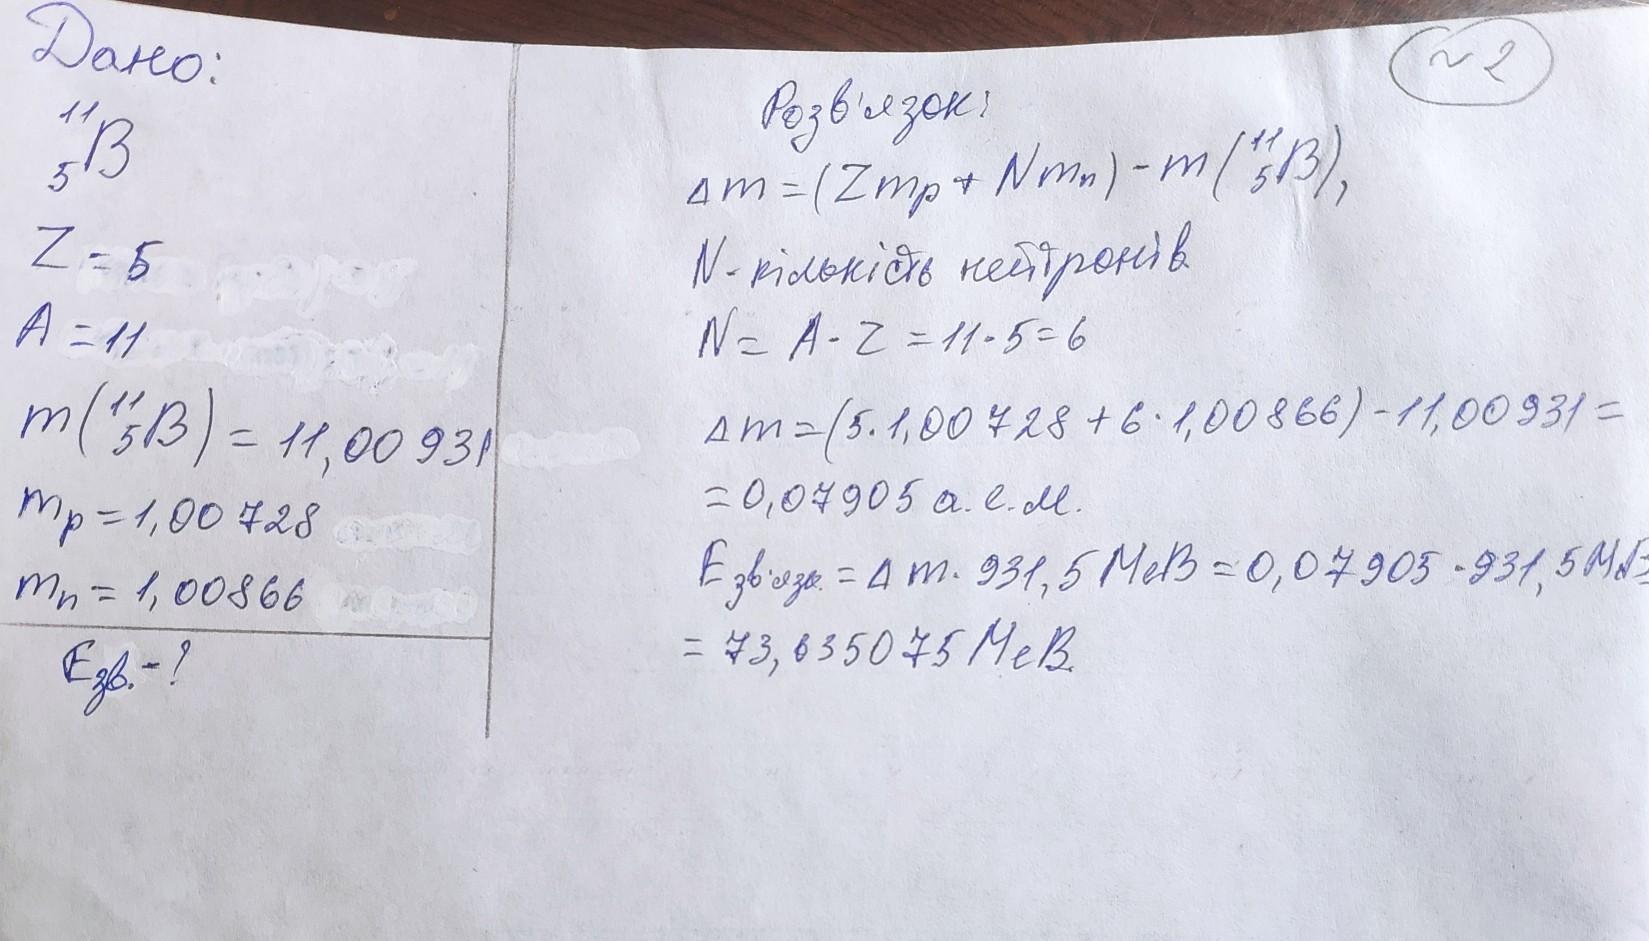 №2
Дано:
¹¹₅B
Z = 5
A = 11
m(¹¹₅B) = 11,00931
mp = 1,00728
mn = 1,00866
Eзв. - ?
Розв'язок:
Δm = (Zmp + Nmn) - m(¹¹₅B),
N - кількість нейтронів
N = A - Z = 11 - 5 = 6
Δm = (5·1,00728 + 6·1,00866) - 11,00931 =
= 0,07905 а.е.м.
Eзв'язк. = Δm · 931,5 МеВ = 0,07905 · 931,5 МеВ
= 73,635075 МеВ.